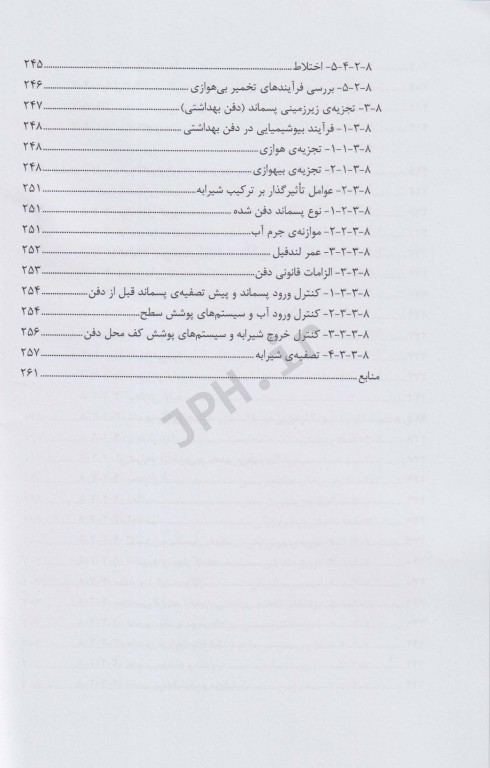 ۸-۲-۴-۵- اختلاط ........ ۲۴۵
۸-۲-۵- بررسی فرآیندهای تخمیر بی‌هوازی ........ ۲۴۶
۸-۳- تجزیه‌ی زیرزمینی پسماند (دفن بهداشتی) ........ ۲۴۷
۸-۳-۱- فرآیند بیوشیمیایی در دفن بهداشتی ........ ۲۴۸
۸-۳-۱-۱- تجزیه‌ی هوازی ........ ۲۴۸
۸-۳-۱-۲- تجزیه‌ی بیهوازی ........ ۲۴۸
۸-۳-۲- عوامل تأثیرگذار بر ترکیب شیرابه ........ ۲۵۱
۸-۳-۲-۱- نوع پسماند دفن شده ........ ۲۵۱
۸-۳-۲-۲- موازنه‌ی جرم آب ........ ۲۵۱
۸-۳-۲-۳- عمر لندفیل ........ ۲۵۲
۸-۳-۳- الزامات قانونی دفن ........ ۲۵۳
۸-۳-۳-۱- کنترل ورود پسماند و پیش تصفیه‌ی پسماند قبل از دفن ........ ۲۵۴
۸-۳-۳-۲- کنترل ورود آب و سیستم‌های پوشش سطح ........ ۲۵۴
۸-۳-۳-۳- کنترل خروج شیرابه و سیستم‌های پوشش کف محل دفن ........ ۲۵۶
۸-۳-۳-۴- تصفیه‌ی شیرابه ........ ۲۵۷
منابع ........ ۲۶۱
JPH.ir